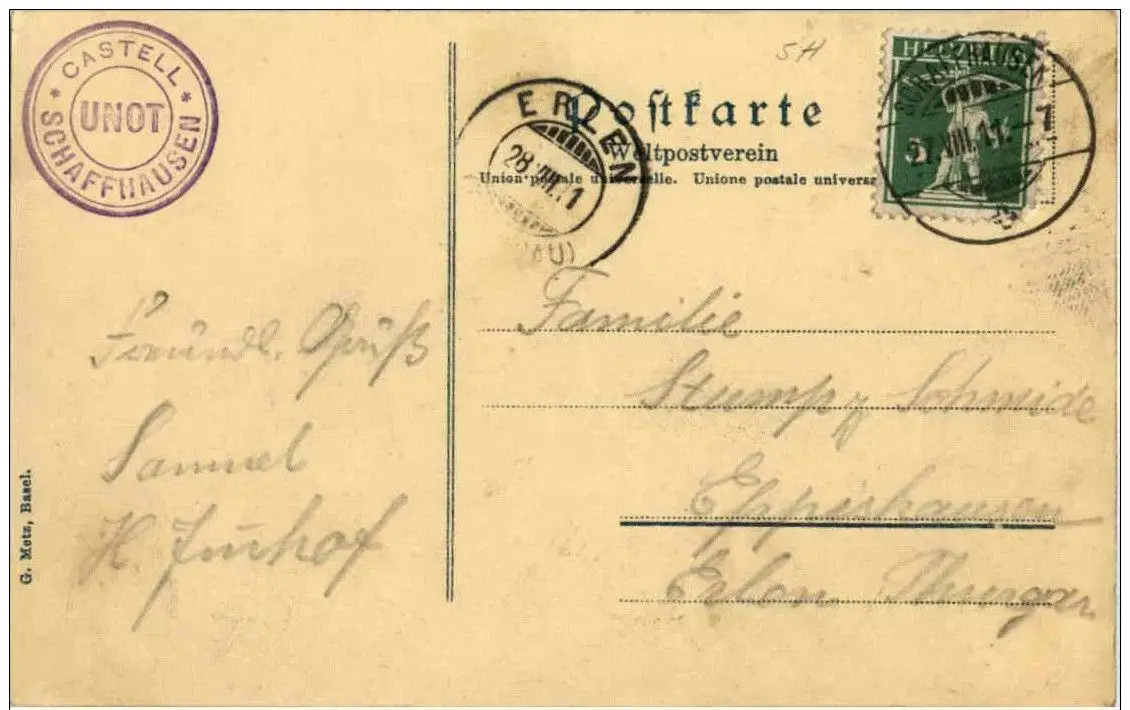 * CASTELL *
UNOT
SCHAFFHAUSEN
SH
Postkarte
Weltpostverein
Union postale universelle. Unione postale univers
ERLEN
28. VIII. 11
HELVETIA
SCHAFFHAUSEN
27. VIII. 11.
5
Freundl. Gruß
Samuel
H. Imhof
G. Metz, Basel.
Familie
Stump z Schmide
Eppishausen
Erlen Thurgau